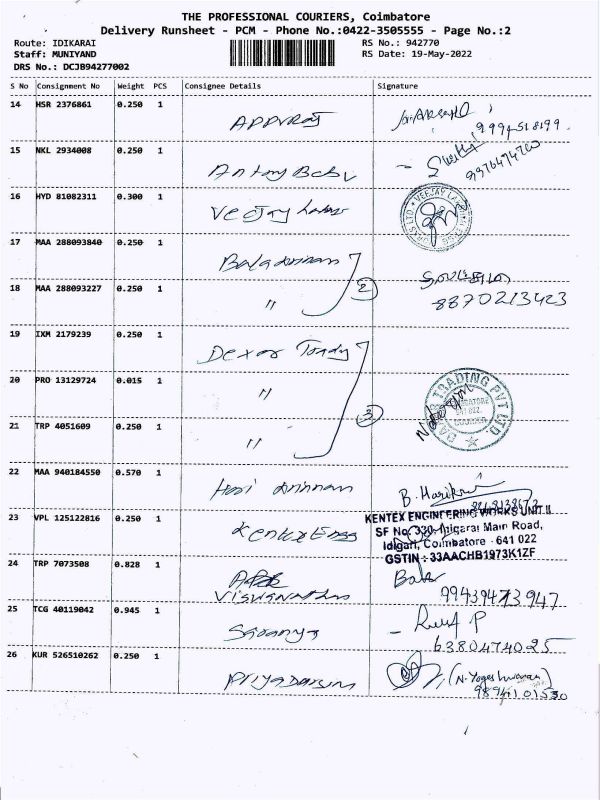 THE PROFESSIONAL COURIERS, Coimbatore
Delivery Runsheet - PCM - Phone No.:0422-3505555 - Page No.:2
Route: IDIKARAI
RS No.: 942770
Staff: MUNIYAND
RS Date: 19-May-2022
DRS No.: DCJB94277002
S No Consignment No Weight PCS Consignee Details Signature
14 HSR 2376861 0.250 1
15 NKL 2934008 0.250 1 Antony Babu
16 HYD 81082311 0.300 1 Veejay
17 MAA 288093840 0.250 1
18 MAA 288093227 0.250 1 " 2
8870213423
19 IXM 2179239 0.250 1
20 PRO 13129724 0.015 1 "
TRADING PVT LTD.
21 TRP 4051609 0.250 1 " 3
22 MAA 940184550 0.570 1 Hari B. Hari
23 VPL 125122816 0.250 1 Kentex Engg
KENTEX ENGINEERING WORKS UNIT II
SF No. 330, Idigarai Main Road,
Idigari, Coimbatore - 641 022
GSTIN : 33AACHB1973K1ZF
24 TRP 7073508 0.828 1 Viswanathan
99439473947
25 TCG 40119042 0.945 1 Saranya
6380474025
26 KUR 526510262 0.250 1 (N. Yogeshwaran)